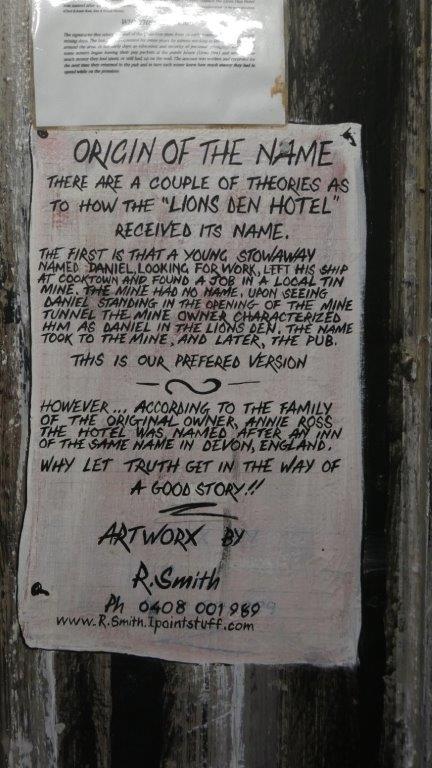 ORIGIN OF THE NAME
THERE ARE A COUPLE OF THEORIES AS
TO HOW THE "LIONS DEN HOTEL"
RECEIVED ITS NAME.
THE FIRST IS THAT A YOUNG STOWAWAY
NAMED DANIEL, LOOKING FOR WORK, LEFT HIS SHIP
AT COOKTOWN AND FOUND A JOB IN A LOCAL TIN
MINE. THE MINE HAD NO NAME. UPON SEEING
DANIEL STANDING IN THE OPENING OF THE MINE
TUNNEL THE MINE OWNER CHARACTERIZED
HIM AS DANIEL IN THE LIONS DEN. THE NAME
TOOK TO THE MINE, AND LATER, THE PUB.
THIS IS OUR PREFERED VERSION
HOWEVER... ACCORDING TO THE FAMILY
OF THE ORIGINAL OWNER, ANNIE ROSS
THE HOTEL WAS NAMED AFTER AN INN
OF THE SAME NAME IN DEVON, ENGLAND.
WHY LET TRUTH GET IN THE WAY OF
A GOOD STORY!!
ARTWORX BY
R.Smith
Ph 0408 001989
www.R.Smith.Ipaintstuff.com